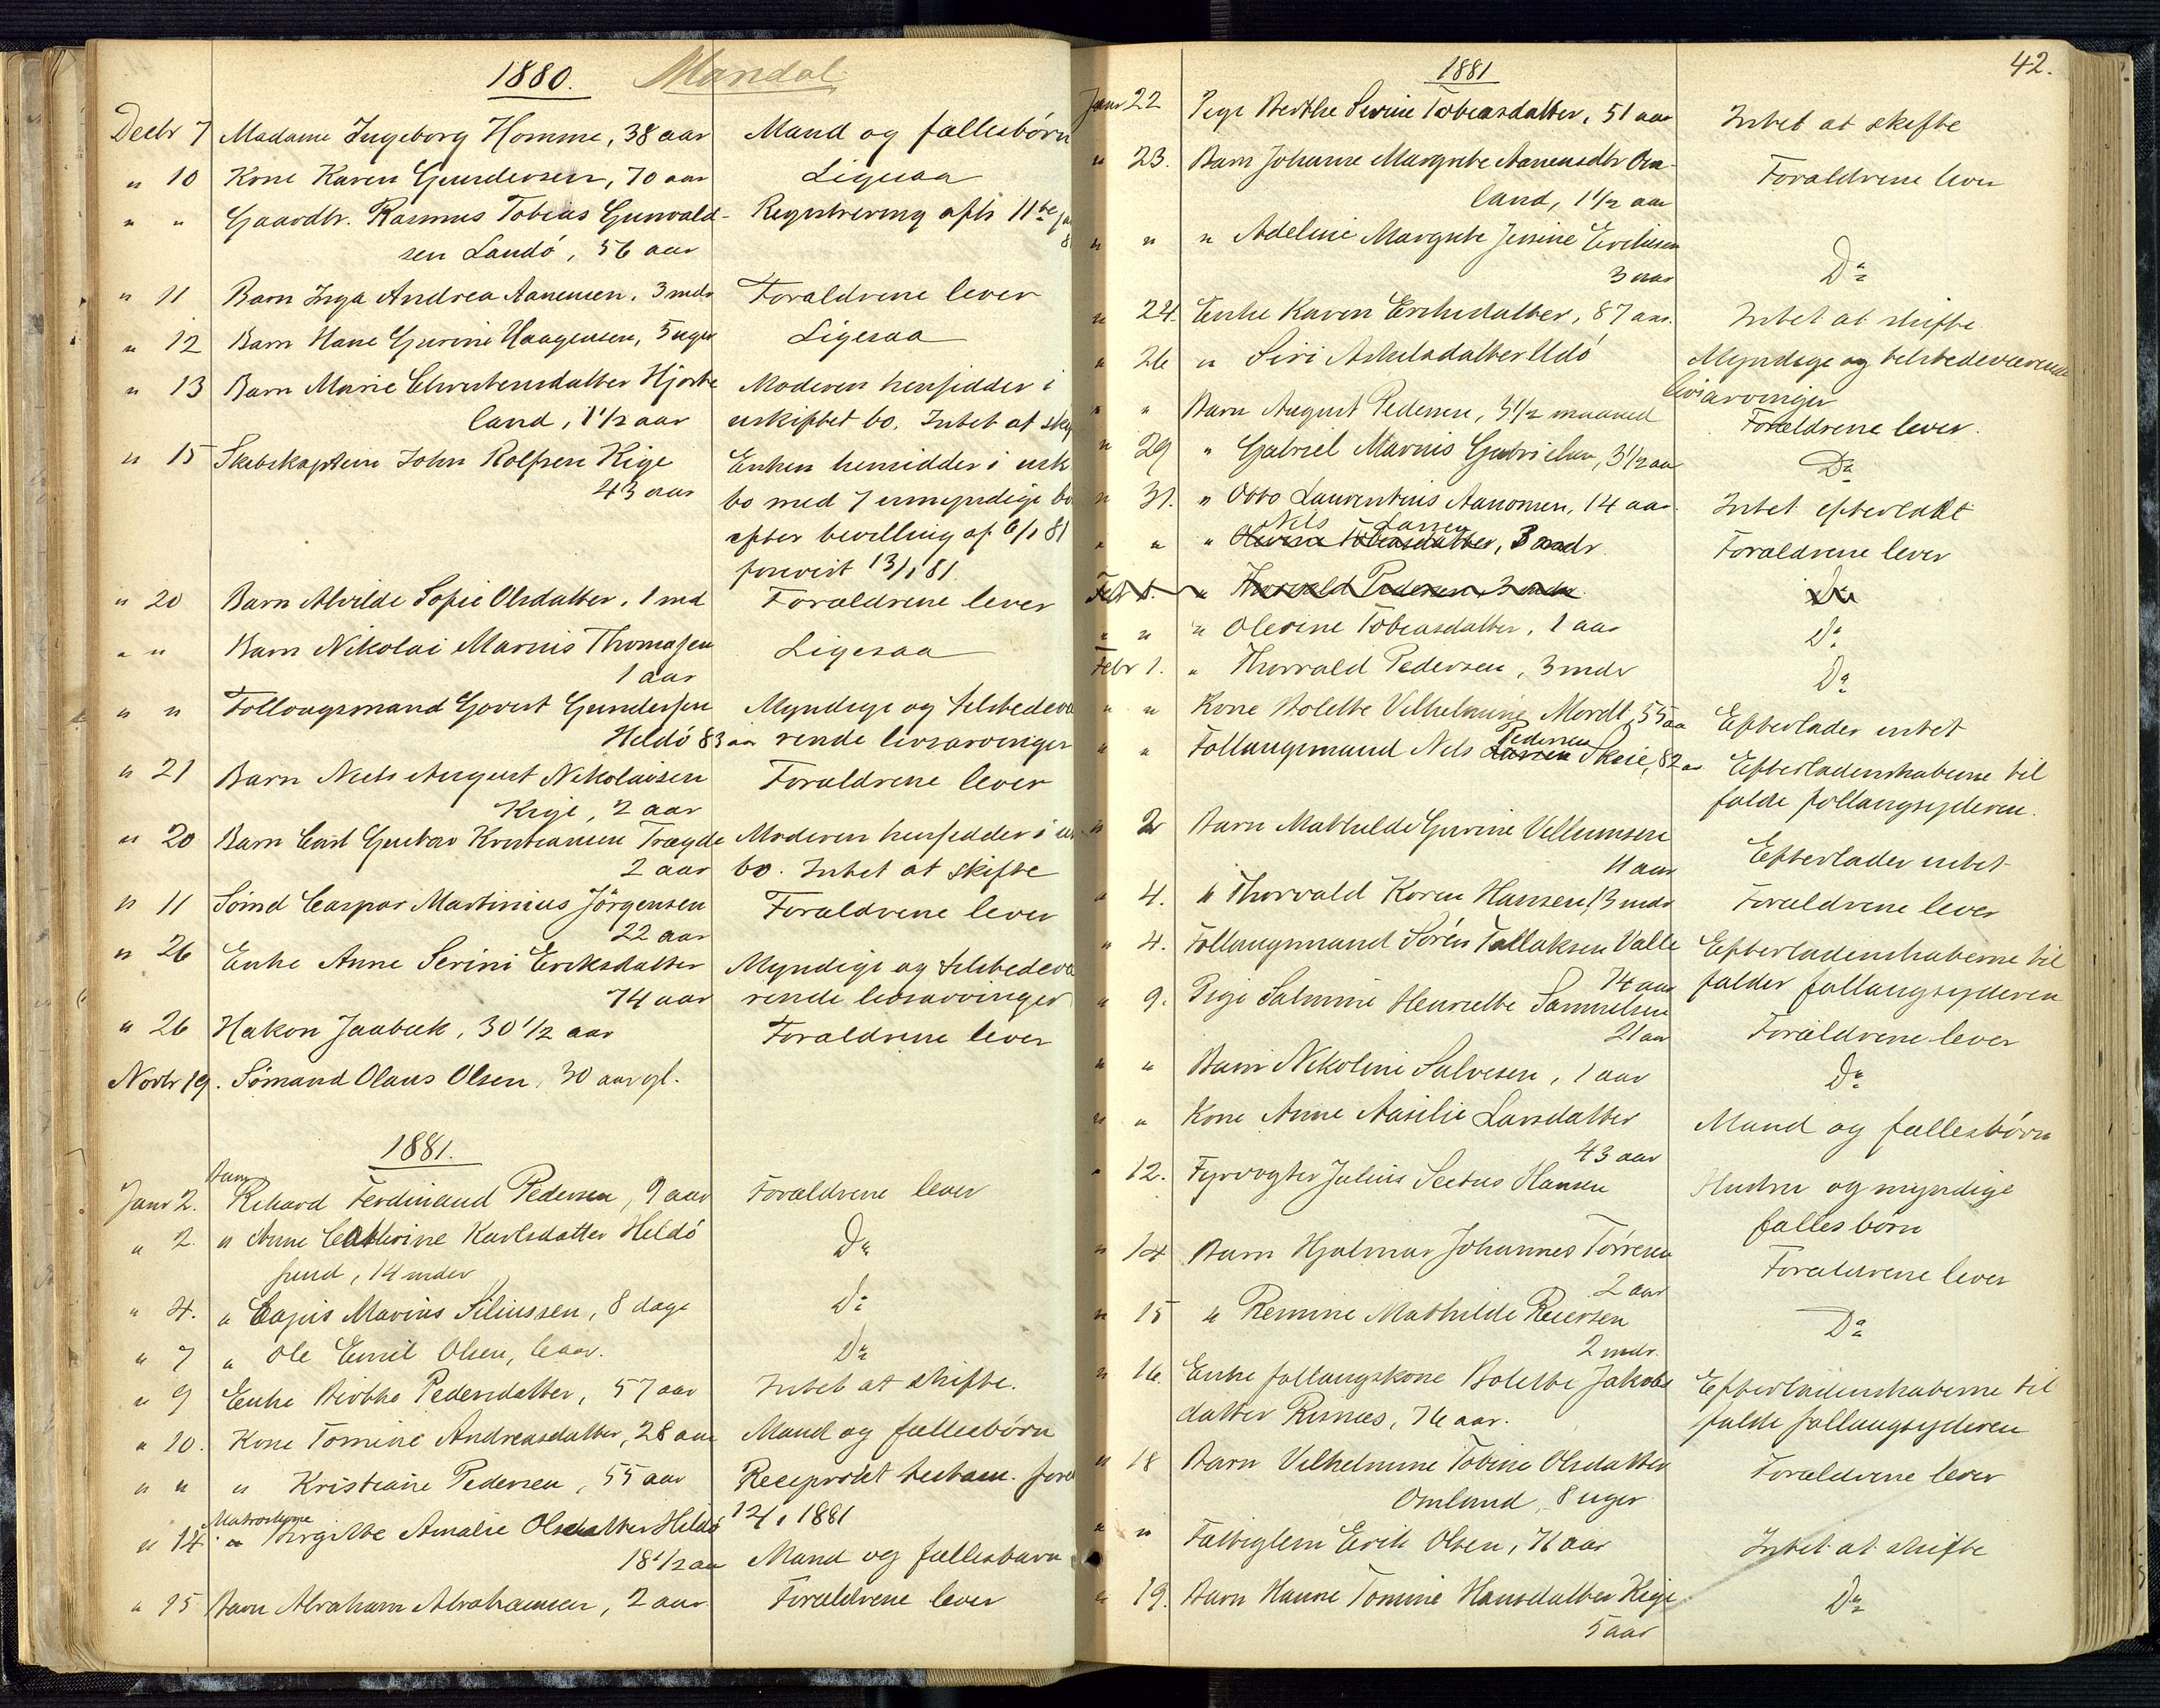 1880. Mandal
Decbr 7 Madame Ingeborg Homme, 38 aar Mand og fællesbørn
" 10 Kone Karen Gundersen, 70 aar Ligesaa
" " Gaardbr. Rasmus Tobias Gunvald- Registrering afh. 11te
sen Landö, 56 aar
" 11 Barn Inga Andrea Aanensen, 3 mdr Forældrene lever
" 12 Barn Hane Gurine Haagensen, 5 uger Ligesaa
" 13 Barn Marie Christensdatter Hjorte Moderen hensidder i
land, 1 1/2 aar uskiftet bo. Intet at
" 15 Skibskaptein John Rolfsen Kige Enken hensidder i usk
43 aar bo med 7 umyndige
efter bevilling af 6/1 81
forevist 13/1 81.
" 20 Barn Alvilde Sofie Olsdatter, 1 md Forældrene lever
" " Barn Nikolai Marius Thomasen Ligesaa
1 aar
" " Follaugsmand Govert Gundersen Myndige og tilstedevæ
Heldö 83 aar rende livsarvinger
" 21 Barn Niels August Nikolaisen Forældrene lever
Kige, 2 aar
" 20 Barn Carl Gustav Kristiansen Trægde Moderen hensidder i
2 aar bo. Intet at skifte
" 11 Sömd Caspar Martinius Jörgensen Forældrene lever
22 aar
" 26 Enke Anne Serini Eriksdatter Myndige og tilstedevæ
74 aar rende livsarvinger
" 26 Hakon Jaabæk, 30 1/2 aar Forældrene lever
Novbr 19. Sömand Olaus Olsen, 30 aar gl.
1881.
Barn
Janr 2. Rikard Ferdinand Pedersen, 9 aar Forældrene lever
" 2. " Anne Cathrine Karlsdatter Heldö Do
sund, 14 mdr
" 4. " Cajus Marius Siliussen, 8 dage Do
" 7 " Ole Emil Olsen, 6 aar. Do
" 9 Enke Berthe Pedersdatter, 57 aar Intet at skifte.
" 10. Kone Tomine Andreasdatter, 28 aar Mand og fællesbørn
" " " Kristiane Pedersen, 55 aar Reciprokt testam. fore
Matroskone 12/1 1881
" 14. " Birgitte Amalie Olsdatter Heldö
18 1/2 aar Mand og fællesbarn
" 15 Barn Abraham Abrahamsen, 2 aar Forældrene lever
42.
1881
Janr 22 Pige Berthe Serine Tobiasdatter, 51 aar Intet at skifte
" 23. Barn Johanne Margrete Aanensdtr Om- Forældrene lever
land, 1 1/2 aar
" " " Adeline Margrete Jensine Eriksen
3 aar Do
" 24. Enke Karen Eriksdatter, 87 aar. Intet at skifte
" 26 " Siri Askelsdatter Udö Myndige og tilstedeværende
livsarvinger
" " Barn August Pedersen, 3 1/2 maaned Forældrene lever.
" 29 " Gabriel Marnis Gabrielsen, 3 1/2 aar Do
" 31. " Otto Laurentius Aanonsen, 14 aar. Intet efterladt
Nils Larsen
" " " Olevine Tobiasdatter, 3 mdr. Forældrene lever
Febr 1. " Thorvald Pedersen, 3 mdr. Do
" " " Olevine Tobiasdatter, 1 aar Do
Febr 1. " Thorvald Pedersen, 3 mdr Do
" " Kone Bolette Vilhelmine Mordt, 55 aar Efterlader intet
Pedersen
" " Follaugsmand Nils Larsen Skeie, 82 aar Efterladenskaberne til
falde follaugsyderen.
" 2 Barn Mathilde Gurine Villumsen Efterlader intet
11 aar
" 4. " Thorvald Koren Hansen, 13 mdr Forældrene lever
" 4. Follaugsmand Sören Tallaksen Valle Efterladenskaberne til
74 aar falder follaugsyderen
" 9. Pige Salmine Henriette Samuelsen
21 aar Forældrene lever
" " Barn Nikoline Salvesen, 1 aar Do
" " Kone Anne Aasilie Larsdatter Mand og fællesbørn
43 aar
" 12. Fyrvogter Julius Seetus Hansen Hustru og myndige
fællesbørn
" 14 Barn Hjalmar Johannes Törresen Forældrene lever
2 aar
" 15 " Remine Mathilde Reiersen Do
2 mdr.
" 16. Enke follaugskone Bolette Jakobs Efterladenskaberne til
datter Risnæs, 76 aar. falde follaugsyderen
" 18 Barn Vilhelmine Tobine Olsdatter Forældrene lever
Omland, 8 uger
" " Fattiglem Erik Olsen, 71 aar Intet at skifte
" 19. Barn Hanne Tomine Hansdatter Kige Do
5 aar